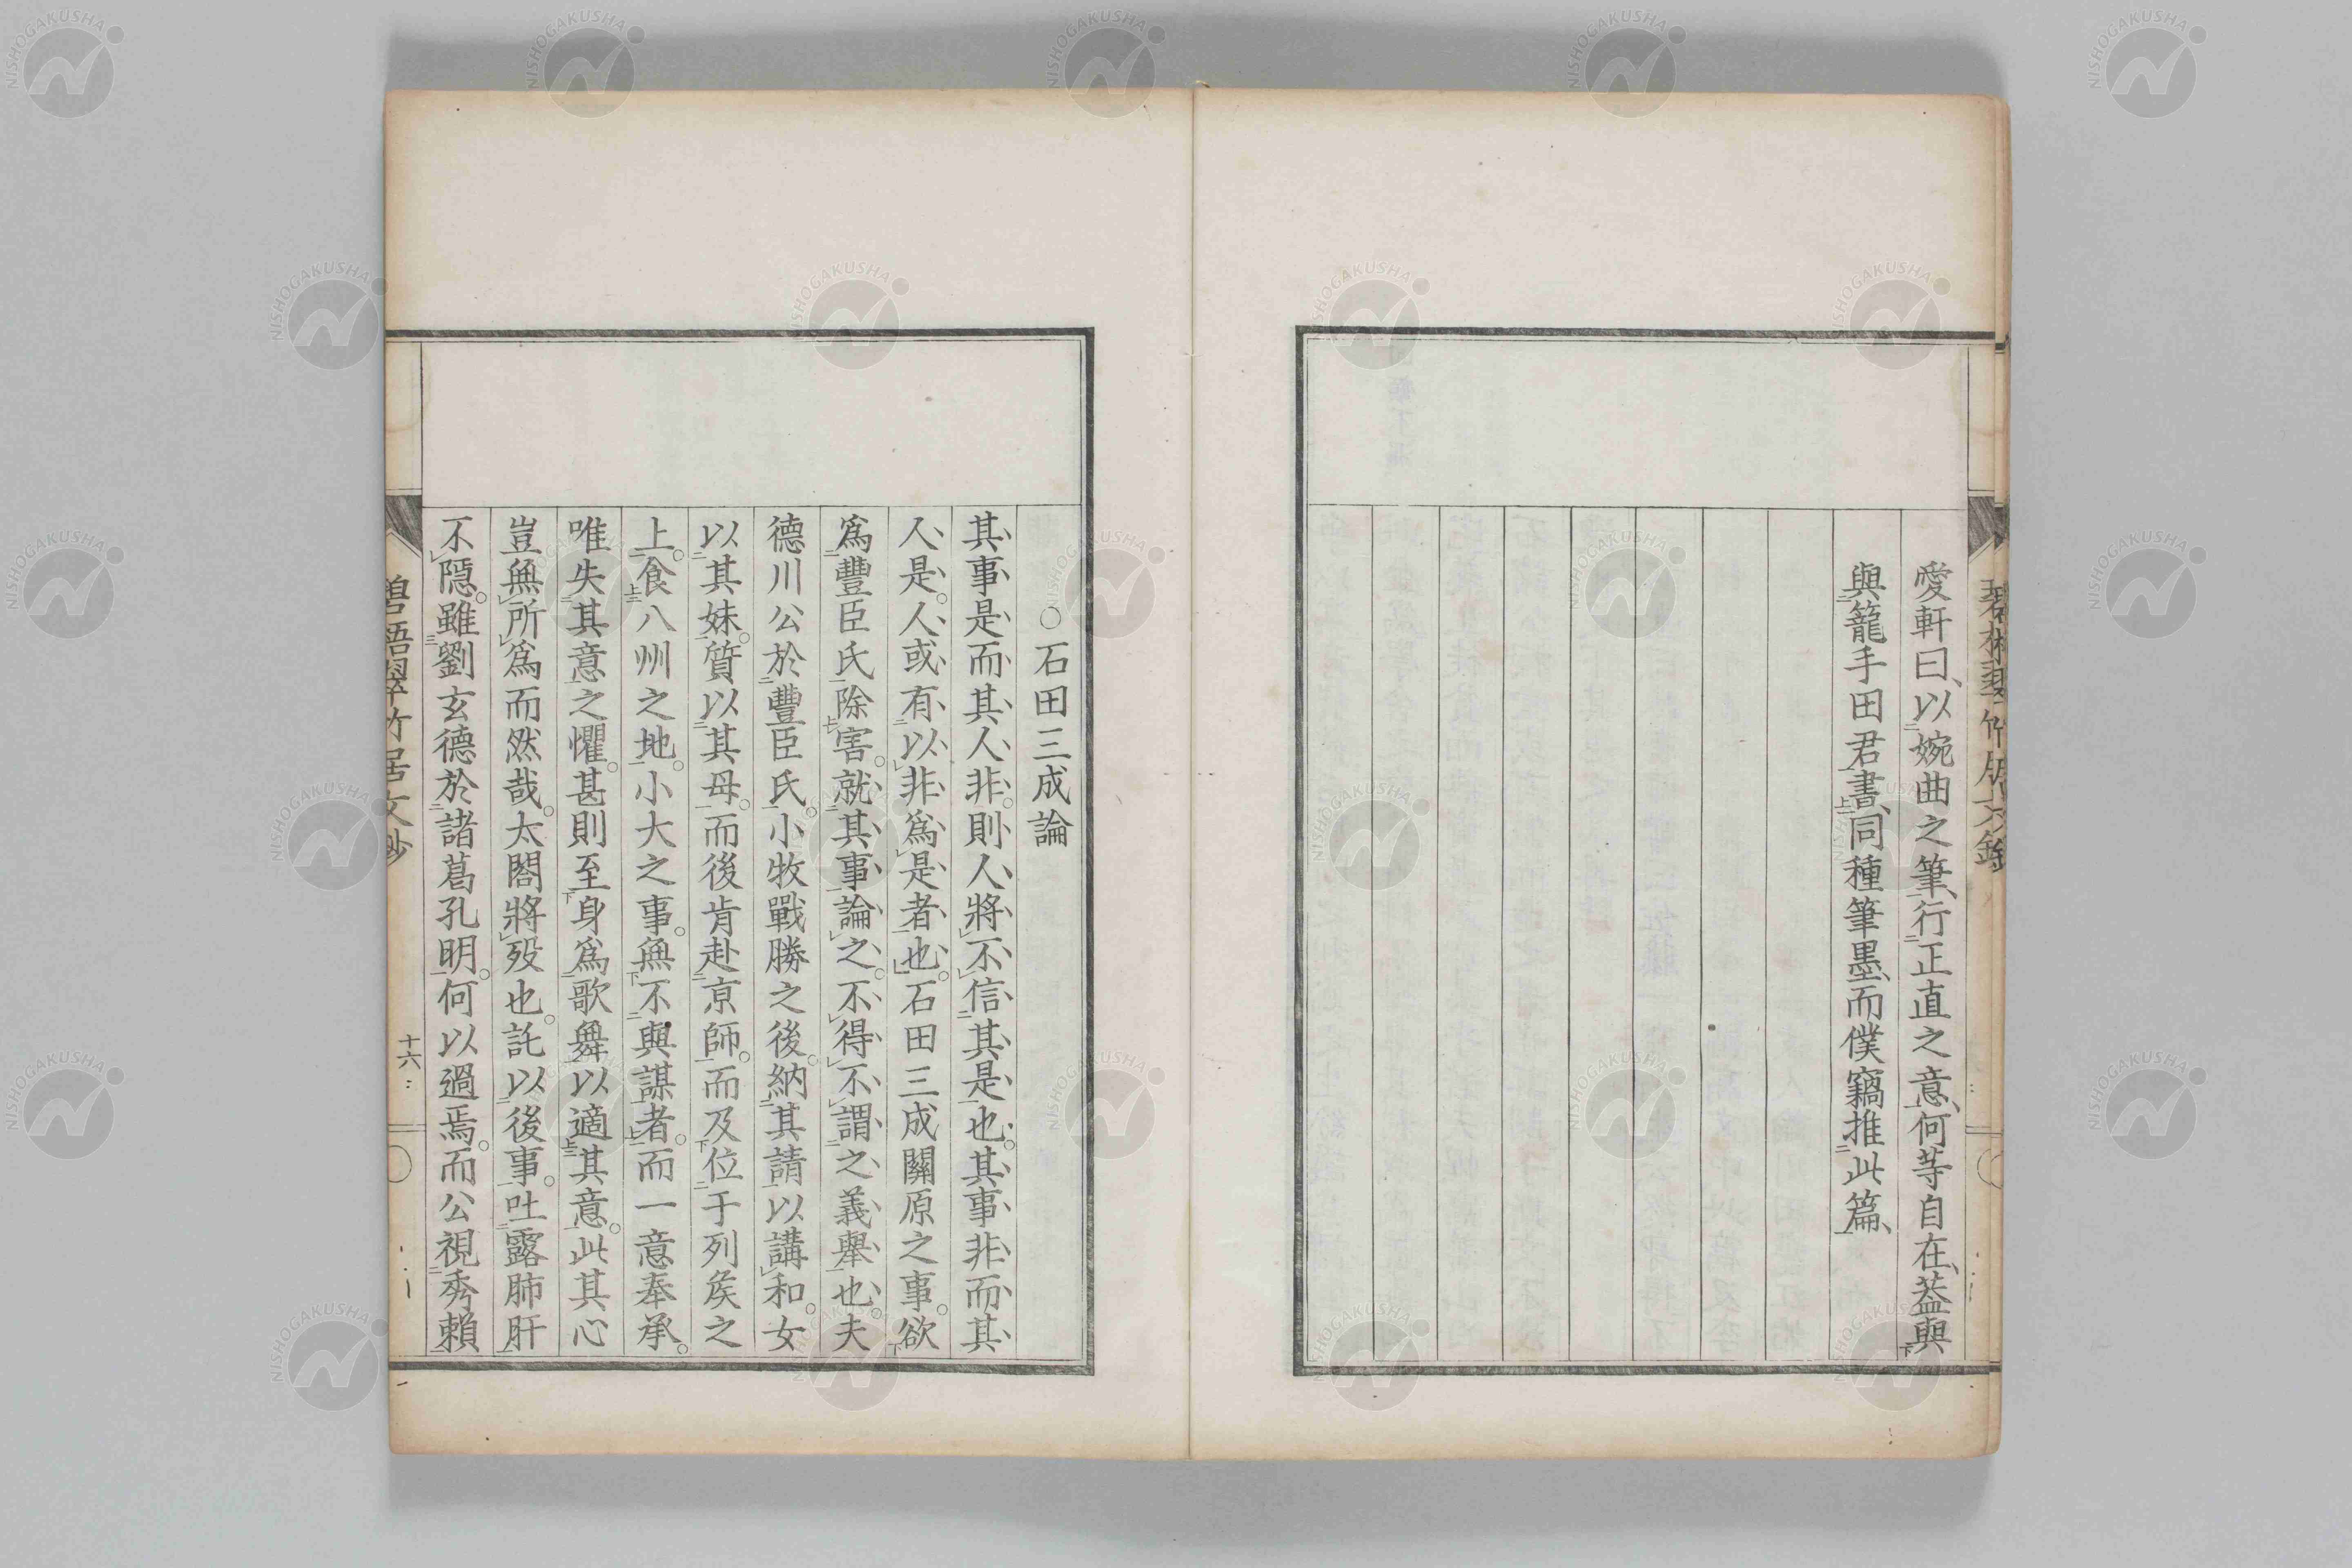 愛軒曰、以婉曲之筆、行正直之意、何等自在、蓋與
與籠手田君書、同種筆墨、而僕竊推此篇、
○石田三成論
其事是而其人非。則人將不信其是也。其事非而其
人是。人或有以非爲是者也。石田三成關原之事。欲
爲豐臣氏除害。就其事論之。不得不謂之義舉也。夫
德川公於豐臣氏。小牧戰勝之後。納其請以講和。女
以其妹。質以其母。而後肯赴京師。而及位于列矦之
上。食八州之地。小大之事。無不與謀者。而一意奉承。
唯失其意之懼。甚則至身爲歌舞以適其意。此其心
豈無所爲而然哉。太閤將歿也。託以後事。吐露肺肝
不隱。雖劉玄德於諸葛孔明。何以過焉。而公視秀賴
碧梧翠竹居文鈔
十六
NISHOGAKUSHA